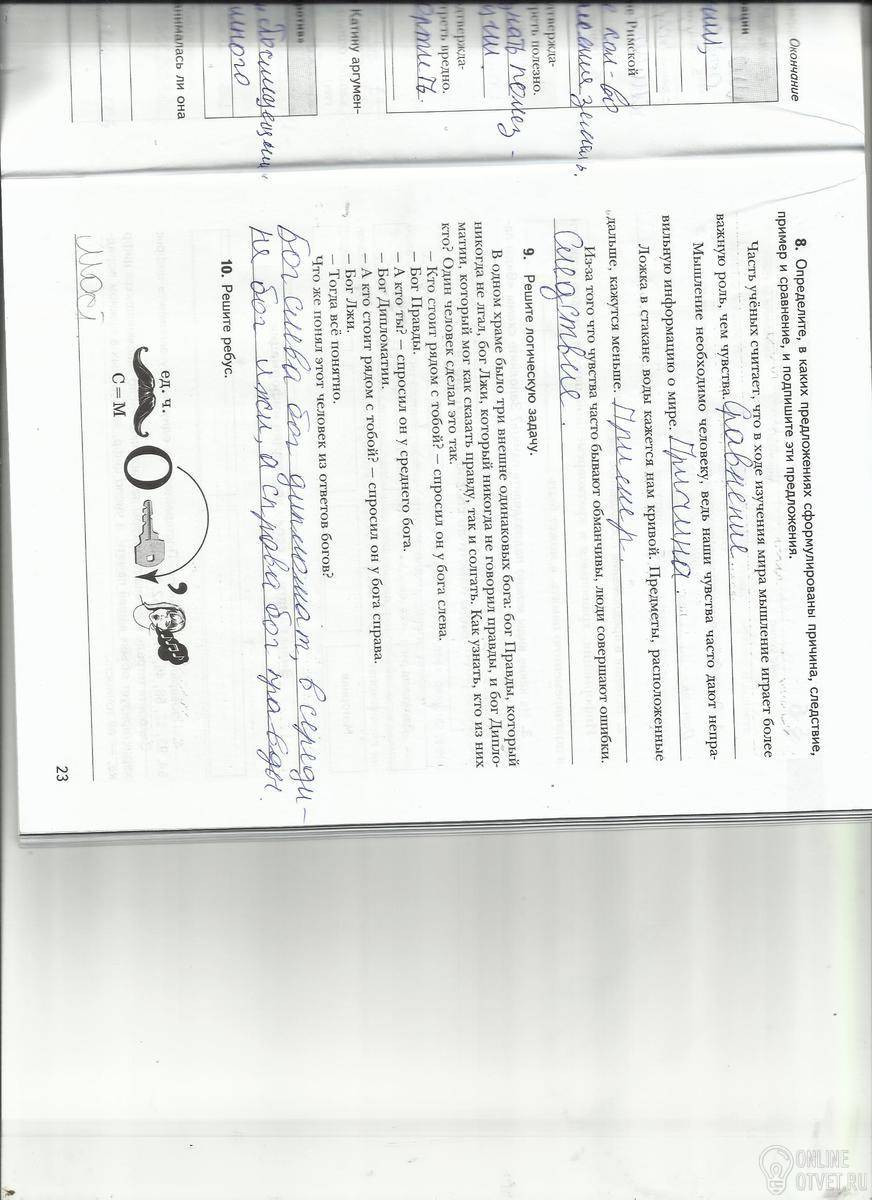 Окончание
ации
ниц,
е Римской
кол-во
земель.
дтвержда-
треть полезно.
дтвержда-
треть вредно.
Катину аргумен-
много
анималась ли она
8. Определите, в каких предложениях сформулированы причина, следствие,
пример и сравнение, и подпишите эти предложения.
Часть учёных считает, что в ходе изучения мира мышление играет более
важную роль, чем чувства. Сравнение.
Мышление необходимо человеку, ведь наши чувства часто дают непра-
вильную информацию о мире. Причина.
Ложка в стакане воды кажется нам кривой. Предметы, расположенные
дальше, кажутся меньше. Пример.
Из-за того что чувства часто бывают обманчивы, люди совершают ошибки.
Следствие.
9. Решите логическую задачу.
В одном храме было три внешне одинаковых бога: бог Правды, который
никогда не лгал, бог Лжи, который никогда не говорил правды, и бог Дипло-
матии, который мог как сказать правду, так и солгать. Как узнать, кто из них
кто? Один человек сделал это так.
– Кто стоит рядом с тобой? – спросил он у бога слева.
– Бог Правды.
– А кто ты? – спросил он у среднего бога.
– Бог Дипломатии.
– А кто стоит рядом с тобой? – спросил он у бога справа.
– Бог Лжи.
– Тогда всё понятно.
Что же понял этот человек из ответов богов?
Бог слева бог дипломат, в середи-
не бог лжи, а справа бог правды.
10. Решите ребус.
ед. ч.
С = М
О
,
23
ONLINE
OTVET.RU